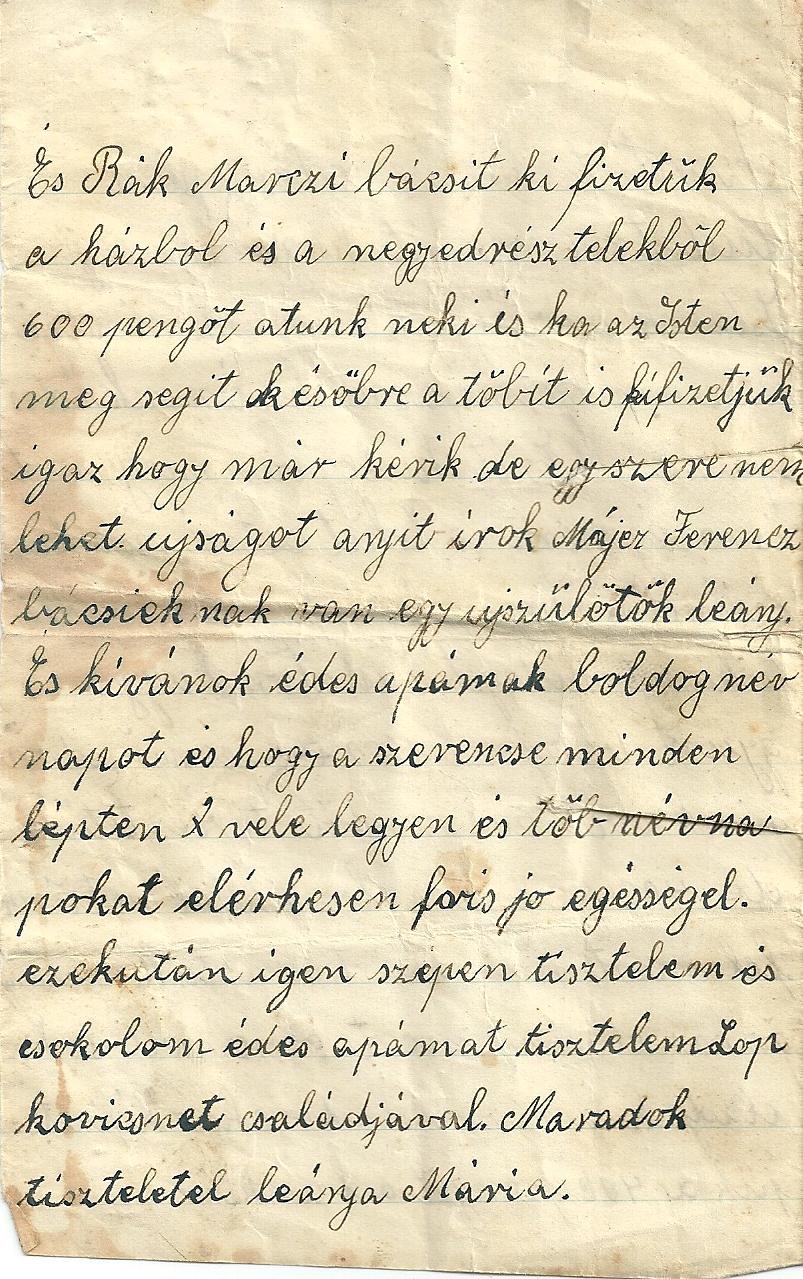 És Rák Marczi bácsit ki fizetük
a házbol és a negyedrész telekből
600 pengőt atunk neki és ha az Isten
meg segit későbre a tőbit is kifizetjük
igaz hogy már kérik de egyszere nem
lehet. ujságot anyit irok Májer Ferencz
bácsieknak van egy ujszülőtők leány.
És kivánok édes apámak boldog név
napot és hogy a szerencse minden
lépten vele legyen és tőb névna
pokat elérhesen friss jo egésségel.
ezekután igen szépen tisztelem és
csokolom édes apámat tisztelem Lop
kovicsnet családjával. Maradok
tiszteletel leánya Mária.